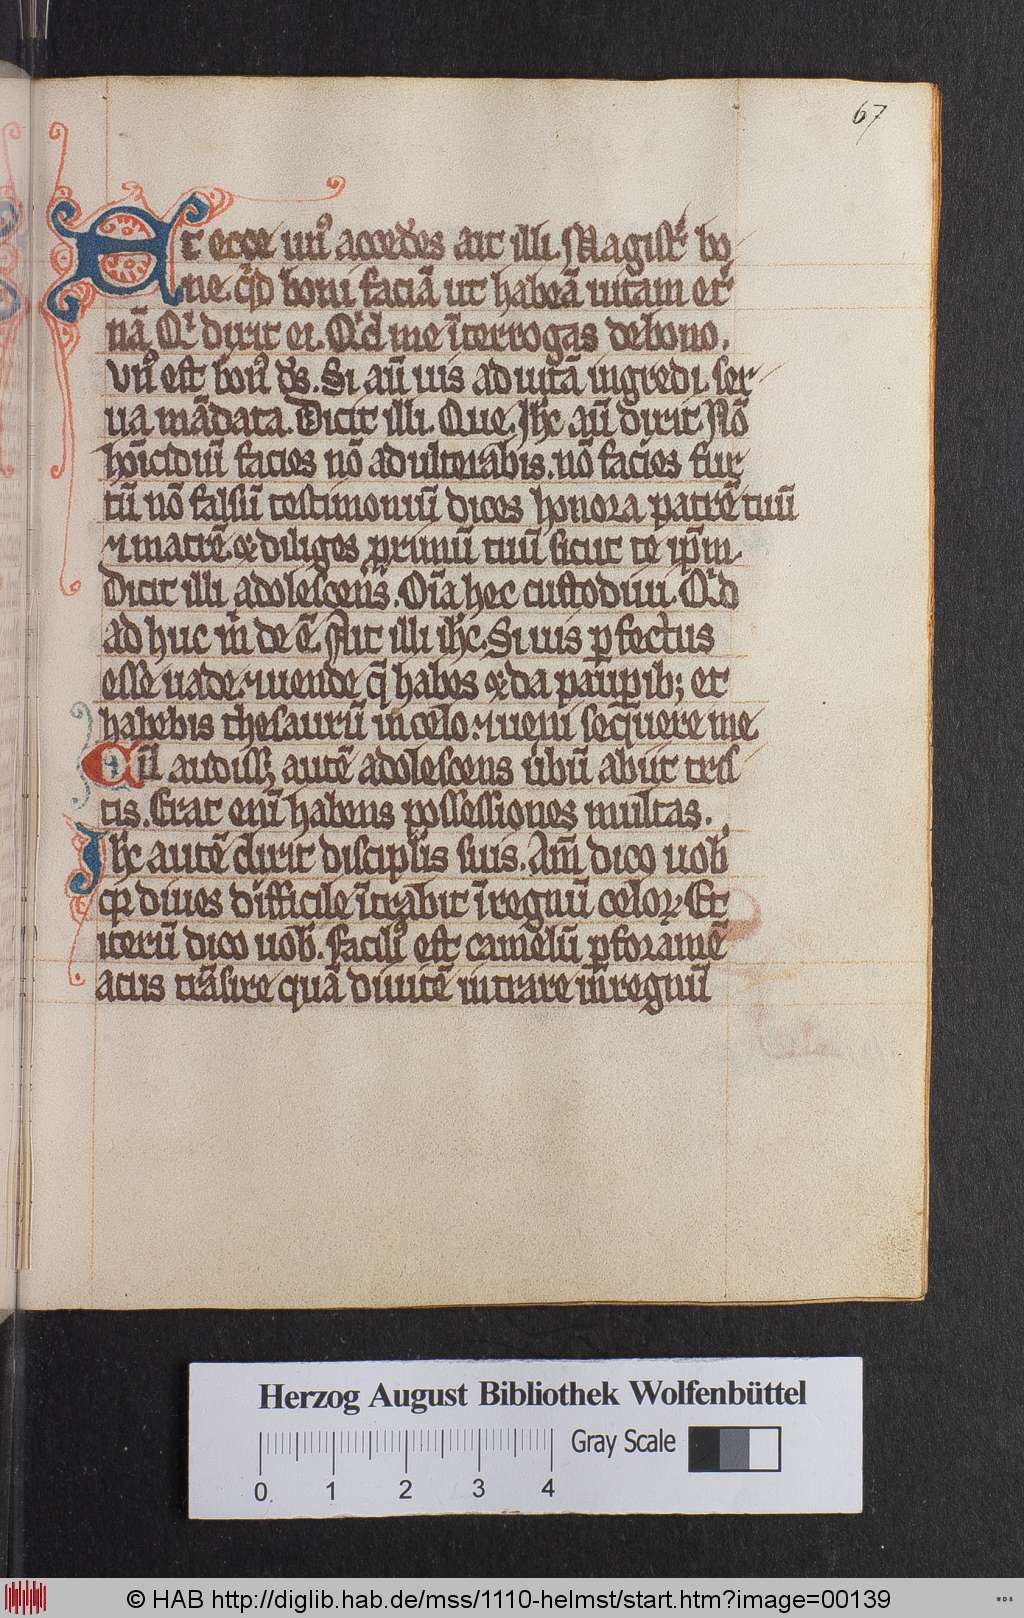 67
At ecce unꝰ accedēs ait illi. Magiſt̾ bo
ne. qͥd boni faciā ut habeā uitam et̾
nā Qͥ dixit ei. Qͥd me īterrogas de bono.
Vnꝰ eſt bonꝰ dſ̄. Si aū uis ad uitā ingredi. ſer
ua mādata. Dicit illi. Que. Ihc̄ aū dixit Nō
hōicidiū facies nō adulterabis. nō facies fur
tū nō falſū teſtimoniū dices honora patrē tuū
⁊ matrē. ⁊ diliges ꝓximū tuū ſicut te ip̄m.
Dicit illi adoleſcens. Oīa hec cuſtodiui. Qͥd
ad huc m̄ de ē. Ait illi ihc̄. Si uis ꝑfectus
eſſe uade. ⁊ uende q̄ habes ⁊ da pauꝑib; et
habebis theſaurū in celo. ⁊ ueni ſequere me
Cū audiſſꝫ autē adoleſcens ūbū abiit triſ
tis. Erat enī habens poſſeſſiones multas.
Ihc̄ autē dixit diſcipl̄is ſuis. Am̄ dico uob̾
qꝛ diues difficile ītrabit ī regnū celoꝝ. Et
iterū dico uob̾. Facilꝰ eſt camelū ꝑ foramē
acus trāſire quā diuitē intrare in regnū
Herzog August Bibliothek Wolfenbüttel
Gray Scale
0 1 2 3 4
© HAB http://diglib.hab.de/mss/1110-helmst/start.htm?image=00139